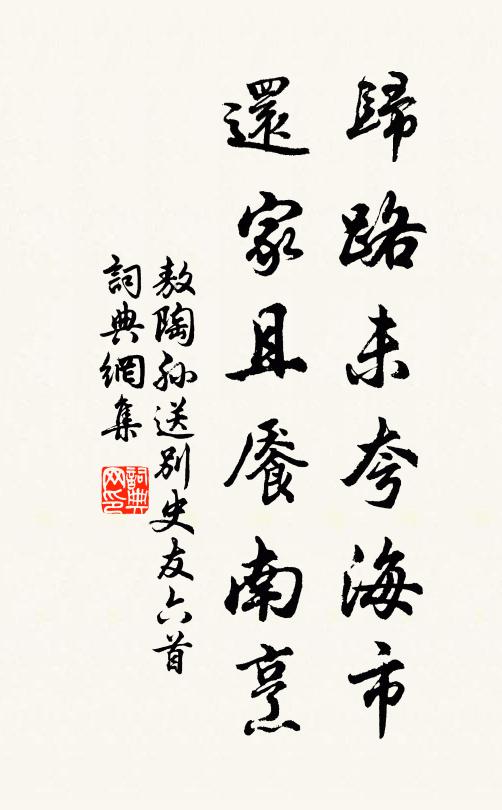 歸路未夸海市
還家且饜南烹
敖陶孫送別史友六首
詞典網集
詞典
网印